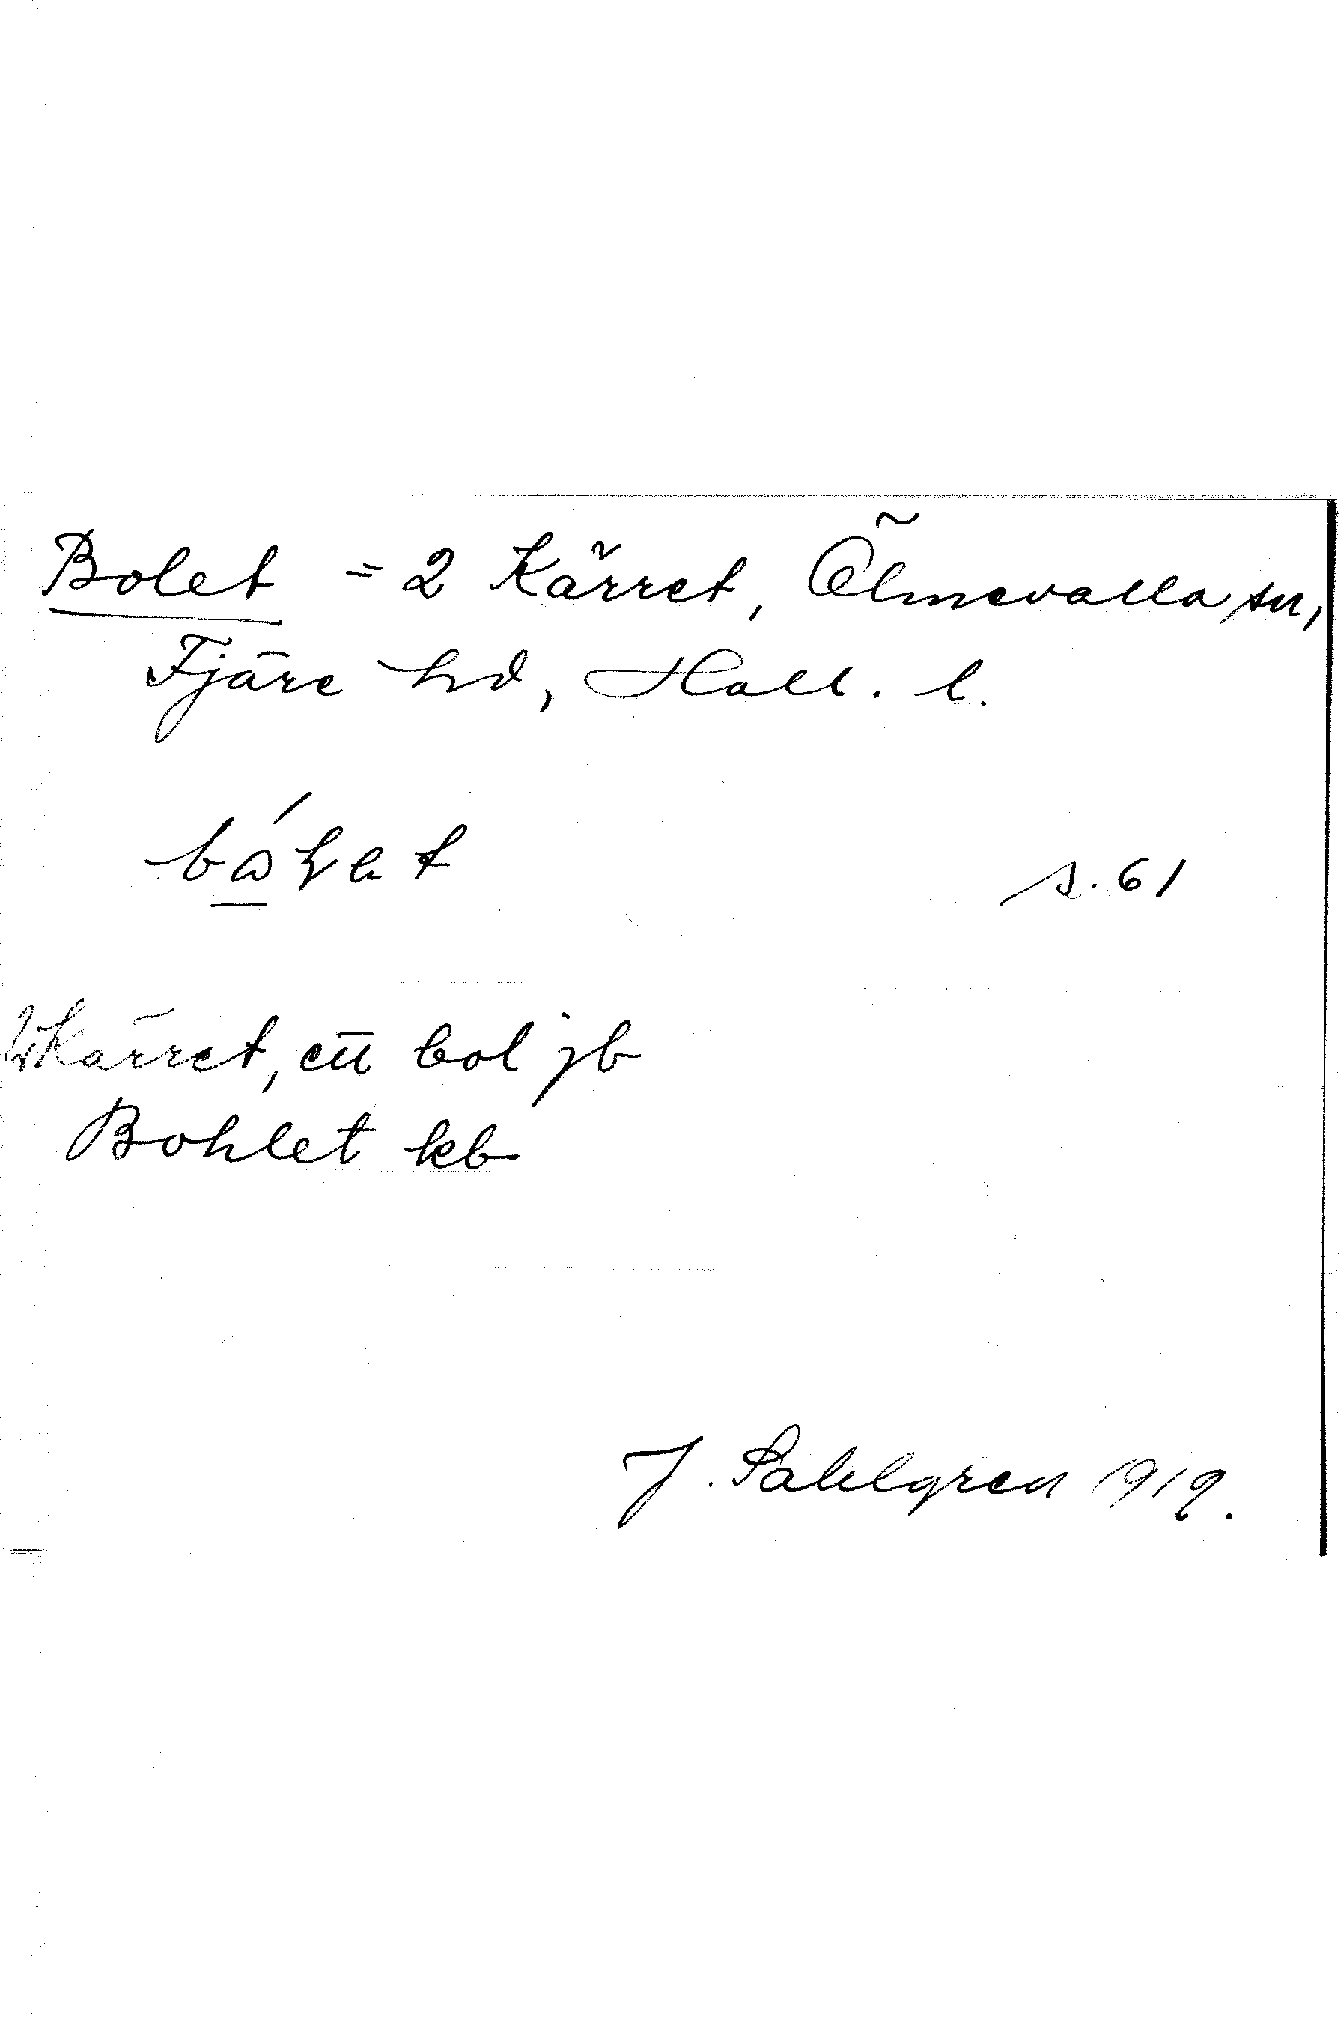 Bolet = 2 Kärret, Ölmevalla sn,
Fjäre hd, Hall. l.
s. 61
Kärret, ett bol jb
Bohlet kb
J. Sahlgren 1919.